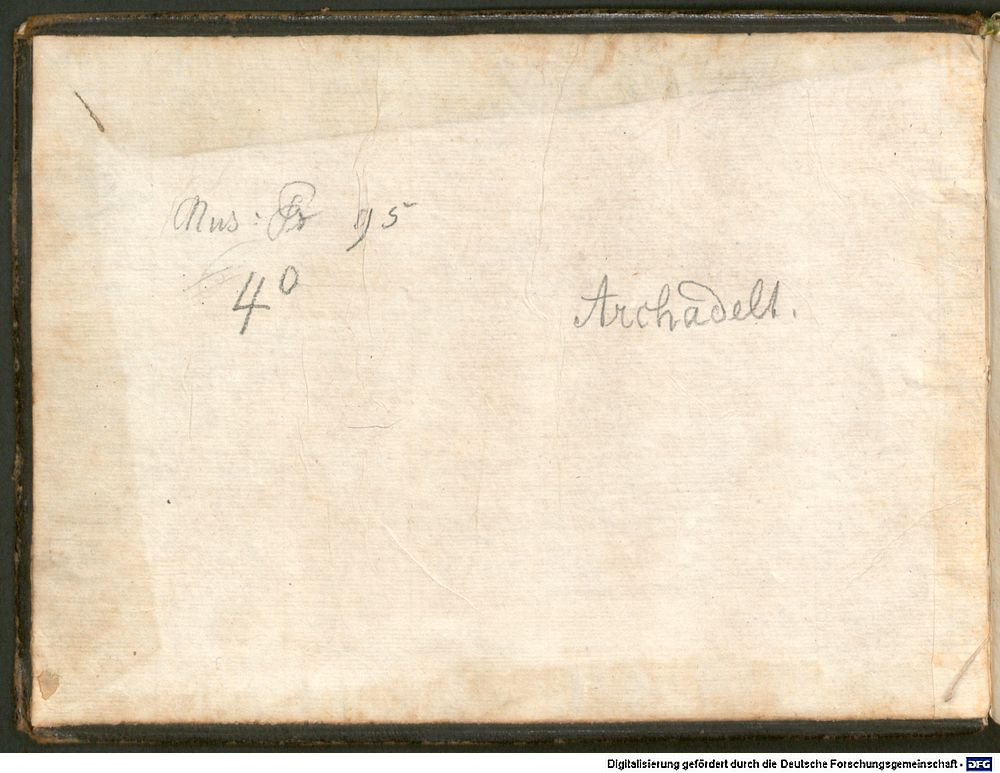 Mus: Pr 95
4º
Archadelt.
Digitalisierung gefördert durch die Deutsche Forschungsgemeinschaft - DFG